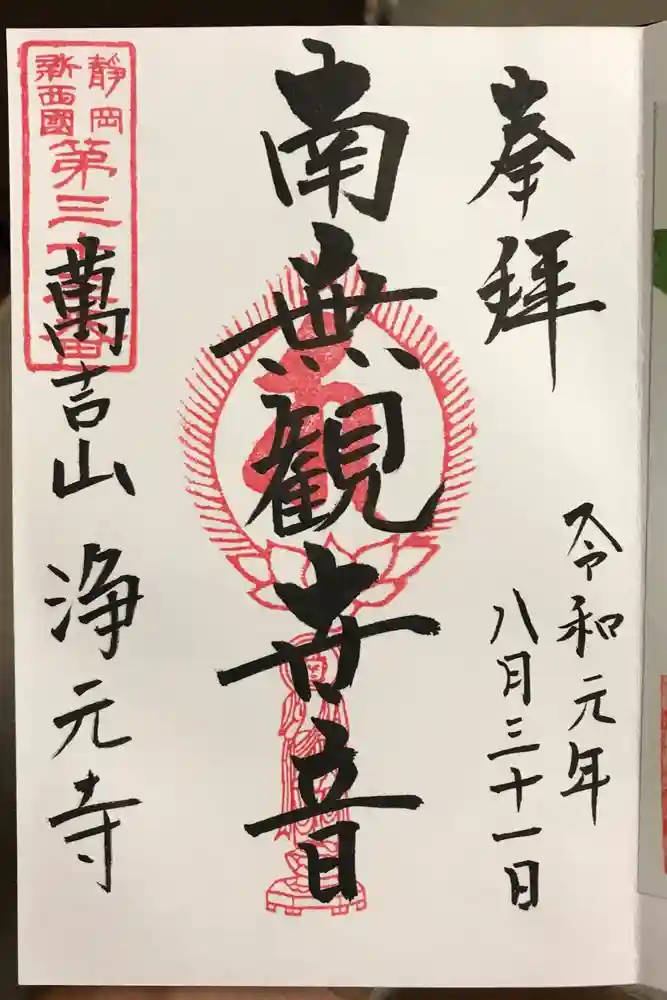 奉拝
令和元年
八月三十一日
南無観世音
静岡
新西國
第三十
萬吉山 浄元寺